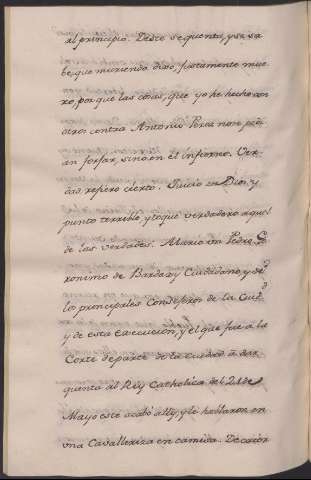 al principio. Deste se quenta, y se sa
be, que muriendo dixo, justamente mue-
ro, por que las cosas, que yo he hecho con
otros contra Antonio Perez no se pod
an forjar, sino en el infierno. Ver-
dad refiero cierto. Juicio es Dios, y
punto terrible, y toque verdadero aquel
de las verdades. Murio un Pedro Ge-
ronimo de Bardaxy Ciudadano, y de
los principales Consejeros de la Ciud.
y de esta execucion, y el que fue a la
Corte de parte de la ciudad a dar
quenta al Rey Catholico del 24 de
Mayo este acabó alli, y le hablaron en
una Cavalleriza en camisa. De